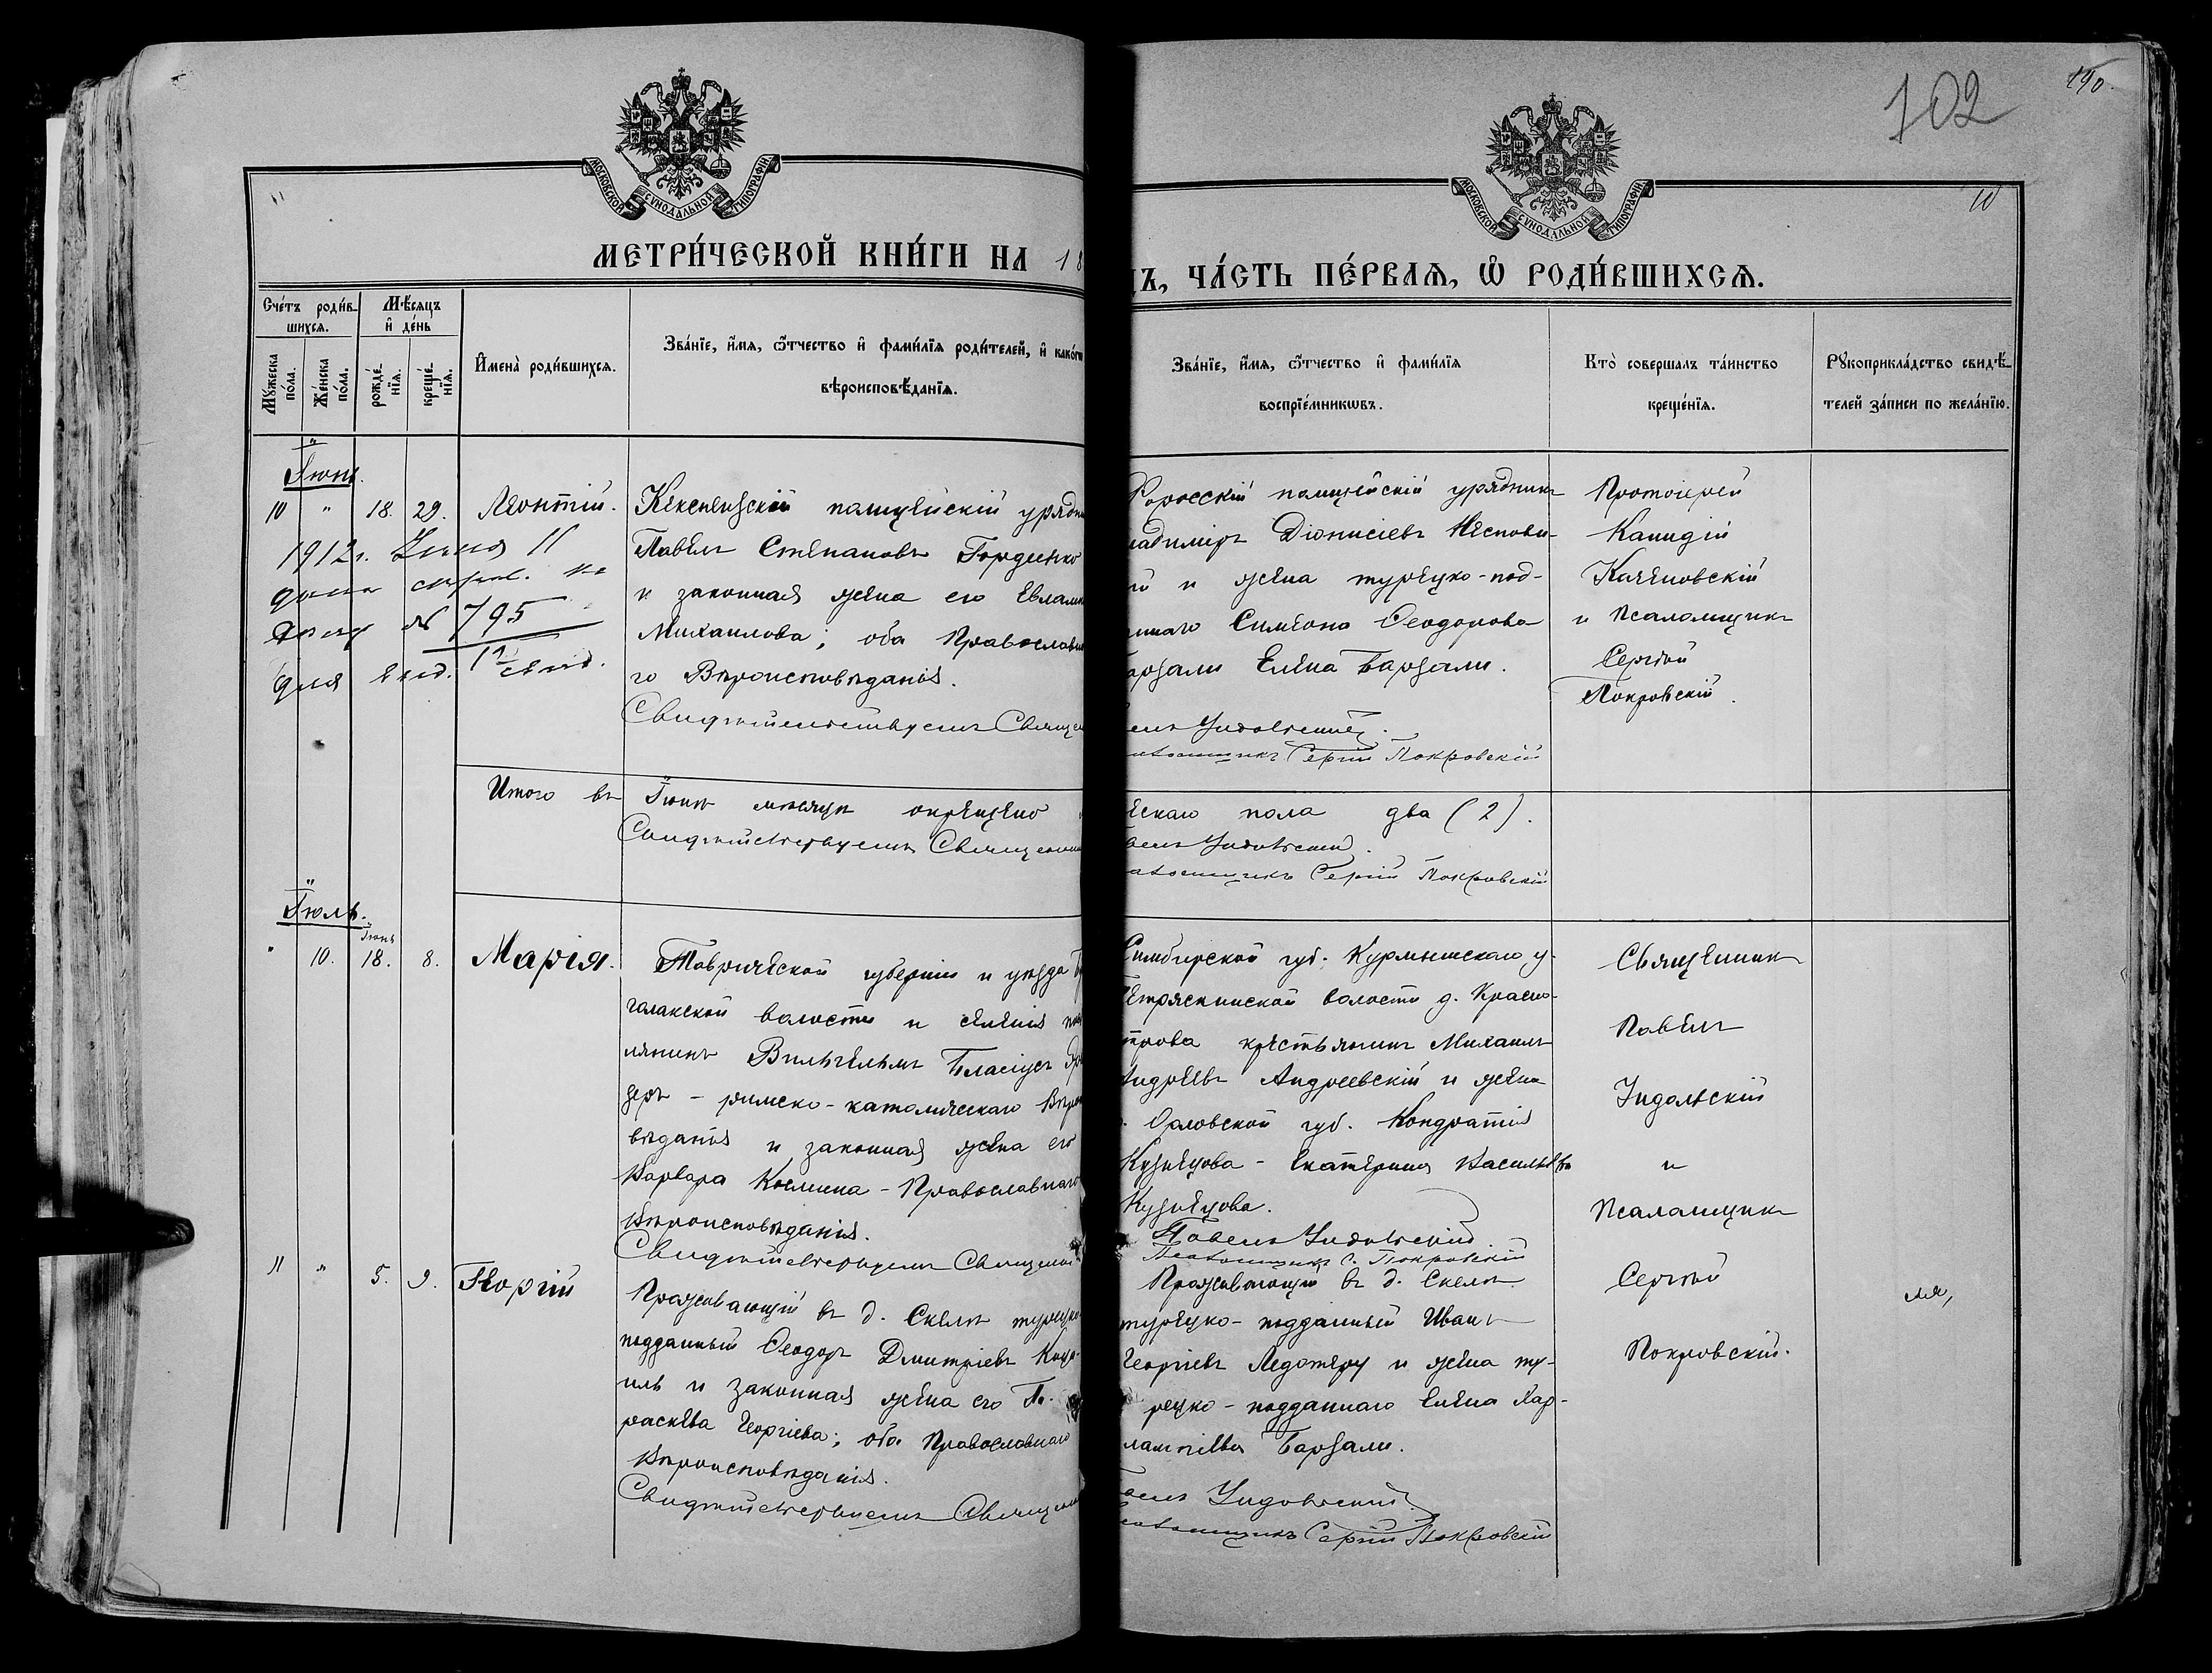 102
190.
МОСКОВСКОЙ СУНОДАЛЬНОЙ ТИПОГРАФІИ
МОСКОВСКОЙ СУНОДАЛЬНОЙ ТИПОГРАФІИ
10
МЕТРИ́ЧЕСКОЙ КНИ́ГИ НА 18
ЧА́СТЬ ПЕ́РВАѦ, Ѽ РОДИ́ВШИХСѦ.
Сче́тъ роди́в-
шихсѧ.
Мѣ́сѧцъ
и҆ де́нь
Мꙋ́жеска
по́ла.
Же́нска
по́ла.
рожде́-
нїѧ.
креще́-
нїѧ.
И҆мена̀ роди́вшихсѧ.
Зва́нїе, и҆́мѧ, ѻ҆́тчество и҆ фами́лїѧ роди́телей, и҆ како́гѡ
вѣроисповѣ́данїѧ.
Зва́нїе, и҆́мѧ, ѻ҆́тчество и҆ фами́лїѧ
воспрїе́мникѡвъ.
Кто̀ соверша́лъ та́инство
креще́нїѧ.
Рꙋкоприкла́дство свидѣ́-
телей за́писи по жела́нїю.
Іюнь.
10 " 18. 29. Леонтій.
1912 г. Июня 11
дана справ. по
№ 795
для
Кекенеизскій полицейскій урядни
Павелъ Степановъ Гордиенко
и законная жена его Евламп
Михаилова; оба Православна
го Вѣроисповѣданія.
Свидѣтельствуемъ Священ
Форосскій полицейскій урядникъ
ладиміръ Діонисіевъ Неспови-
ій и жена турецко-под-
аннаго Симеона Феодорова
арзали Елена Барзали.
велъ Ундольскій.
Псаломщикъ Сергій Покровскій
Протоіерей
Каеновскій
и Псаломщикъ
Сергѣй
Покровскій.
Итого въ Іюнѣ мѣсяцѣ окрещено
ескаго пола два (2).
Свидѣтельствуемъ Священни
велъ Ундольскій.
аломщикъ Сергій Покровскій
Іюль.
Іюнь
" 10. 18. 8. Марія.
Таврической губерніи и уѣзда
галакской волости и селенія
лянинъ Вильгельмъ Бласіусъ
церъ - римско-католическаго Вѣро
вѣданія и законная жена его
Варвара Косьмина - Православнаго
Вѣроисповѣданія.
Свидѣтельствуемъ Священни
Симбирской губ. Курмышскаго у-
Петряксинской волости д. Красно-
строва крестьянинъ Михаилъ
Андреевъ Андреевскій и жена
Орловской губ. Кондратія
Кузнецова - Екатерина Васильева
Кузнецова.
Павелъ Ундольскій
Псаломщикъ С. Покровскій
Священникъ
Павелъ
Ундольскій
и
Псаломщикъ
Сергѣй
Покровскій.
11 " 5. 9. Георгій
Проживающій въ д. Скеля турецко-
подданный Феодоръ Дмитріевъ
и законная жена его Па-
раскева Георгіева; оба Православнаго
Вѣроисповѣданія.
Свидѣтельствуемъ Священни
Проживающій въ д. Скеля
турецко-подданный Иванъ
Георгіевъ и жена ту-
рецко-подданнаго Елена Хар-
лампіева Барзали.
велъ Ундольскій
Псаломщикъ Сергій Покровскій